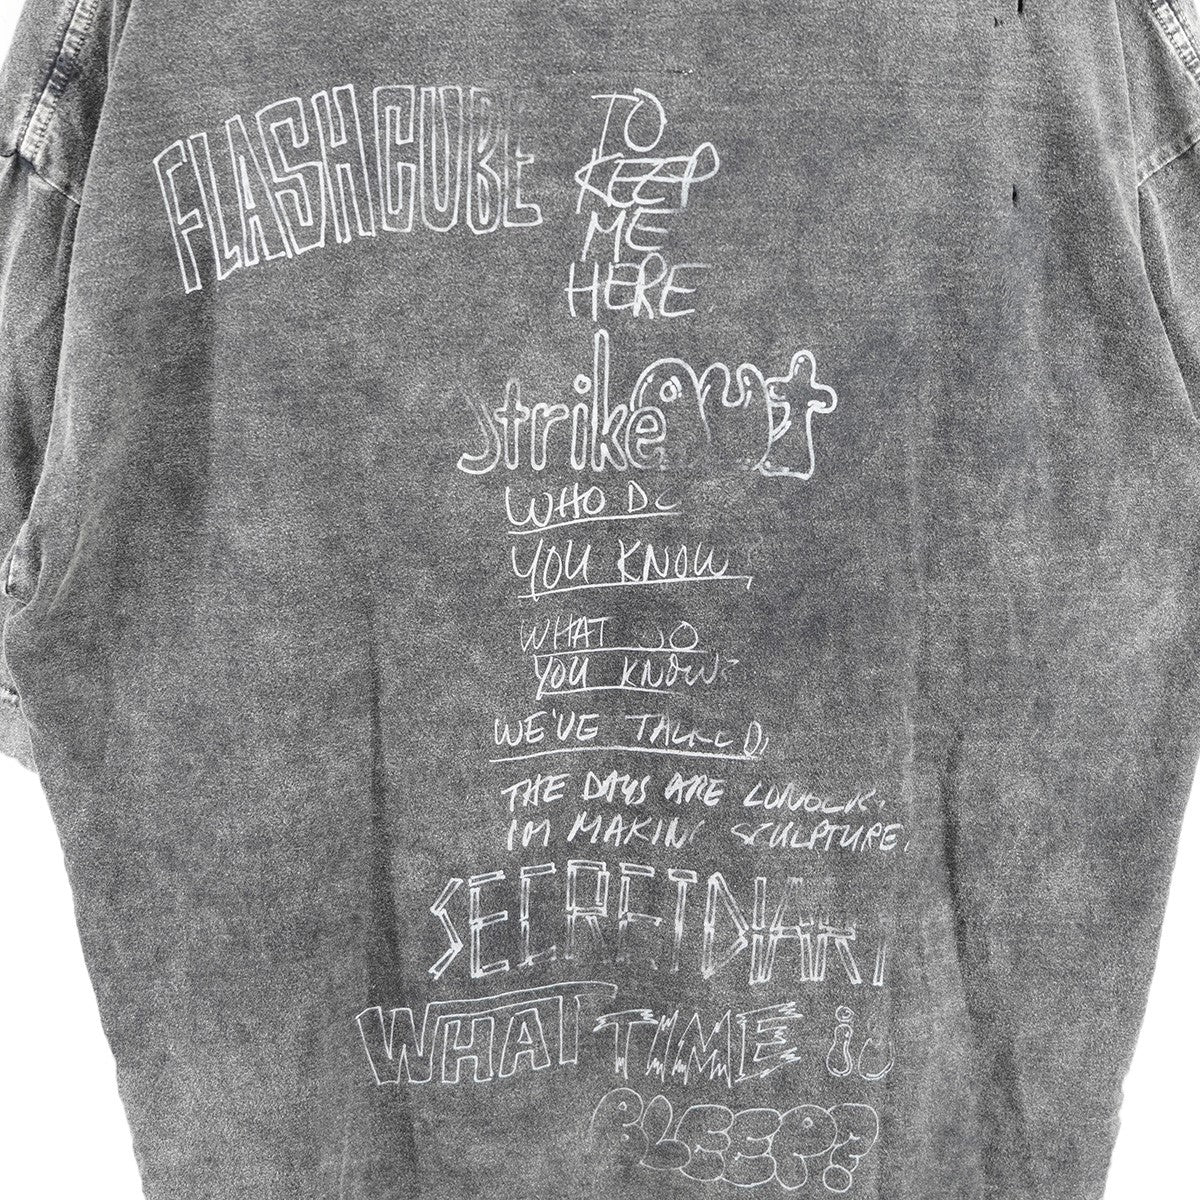 FLASHCUBE
TO
KEEP
ME
HERE
strikeout
WHO DO
YOU KNOW
WHAT DO
YOU KNOW?
WE'VE TALKED
THE DAYS ARE LONGER.
IM MAKING SCULPTURE.
SECRETDIARY
WHAT TIME is
BLEEP?